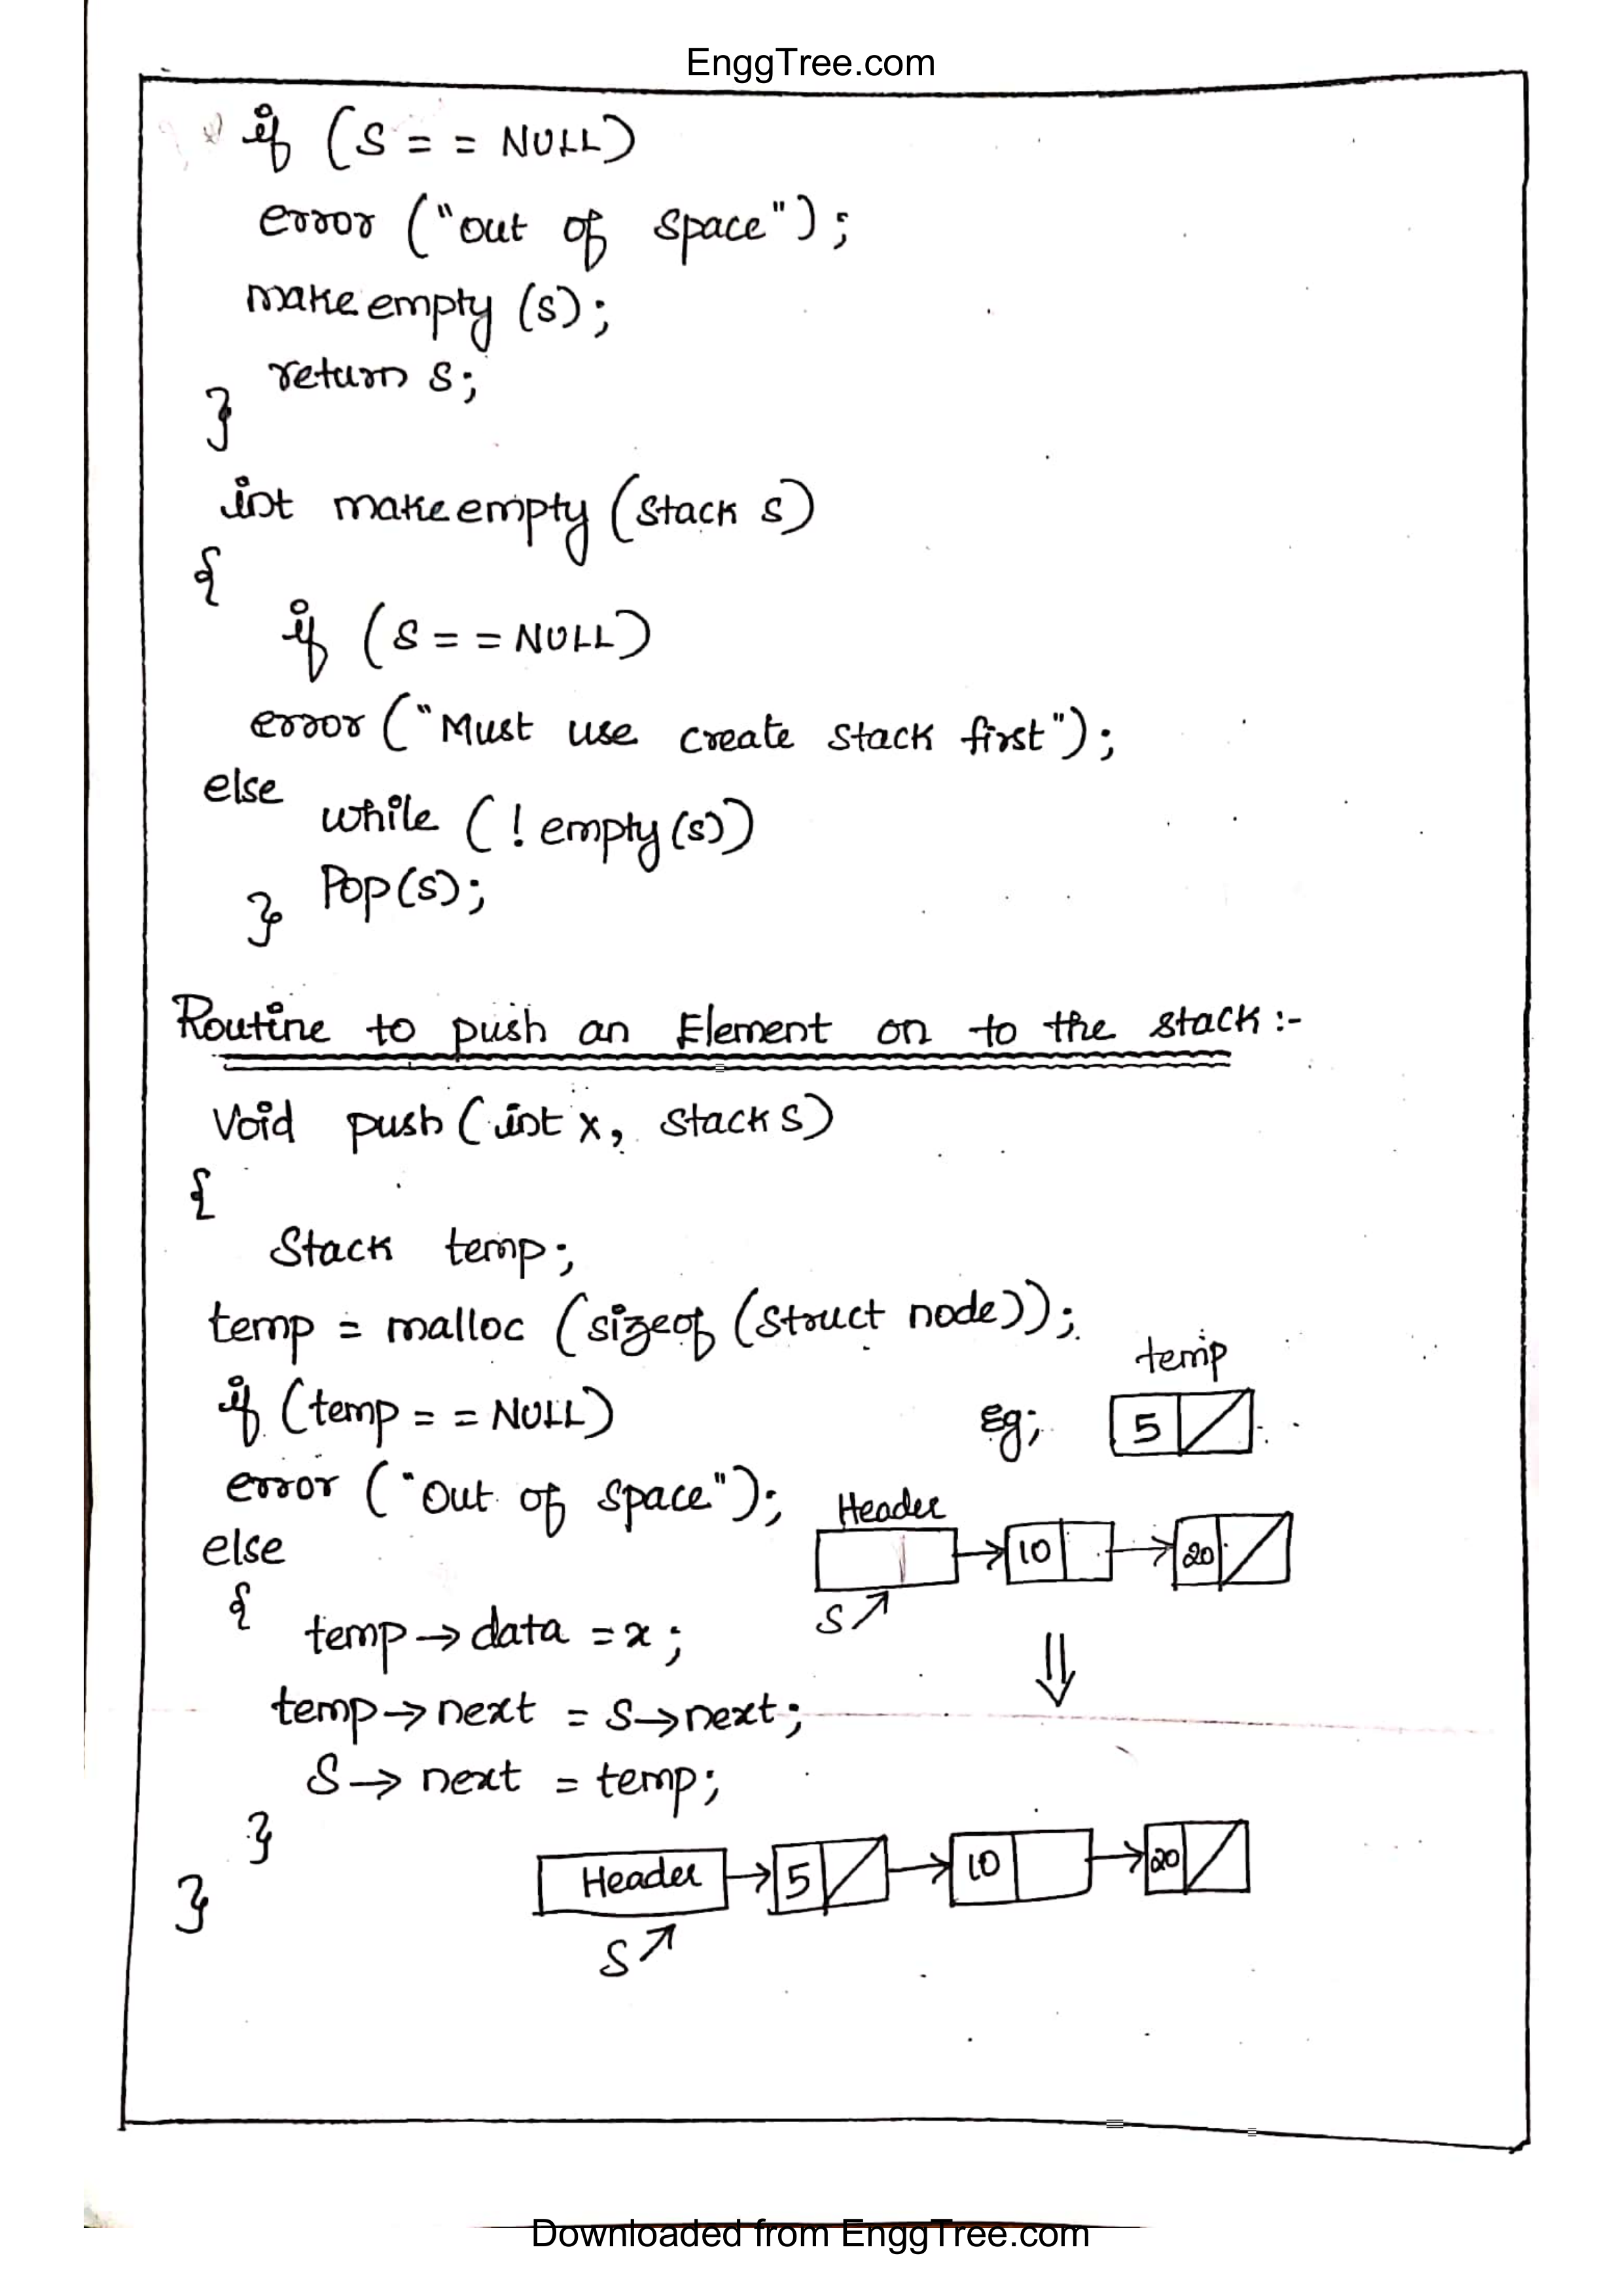 EnggTree.com
if (S = = NULL)
error ("out of space");
make empty (S);
return S;
}
int make empty (Stack S)
{
if (S = = NULL)
error ("Must use create stack first");
else
while (! empty (s))
Pop (S);
}
Routine to push an Element on to the stack :-
Void push (int x, Stack S)
{
Stack temp;
temp = malloc (sizeof (Struct node));
temp
if (temp = = NULL)
Eg;
5
error ("Out of space");
Header
10
20
else
S
{
temp → data = x;
temp → next = S → next;
S → next = temp;
}
Header
5
10
20
}
S
Downloaded from EnggTree.com